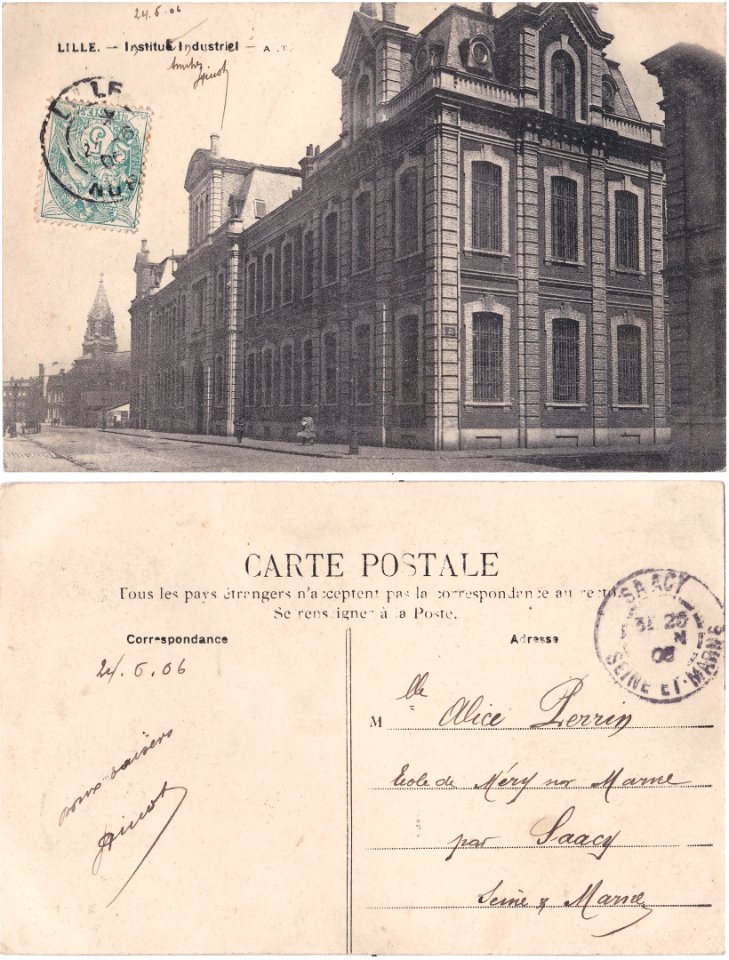 24.6.06
LILLE. — Institut Industriel — A. T.
LILLE
NORD
CARTE POSTALE
Tous les pays étrangers n'acceptent pas la correspondance au recto.
Se renseigner à la Poste.
Correspondance
Adresse
24.6.06
SAACY
25
06
SEINE-ET-MARNE
Mlle Alice Perrin
Ecole de Méry sur Marne
par Saacy
Seine & Marne
doux baisers